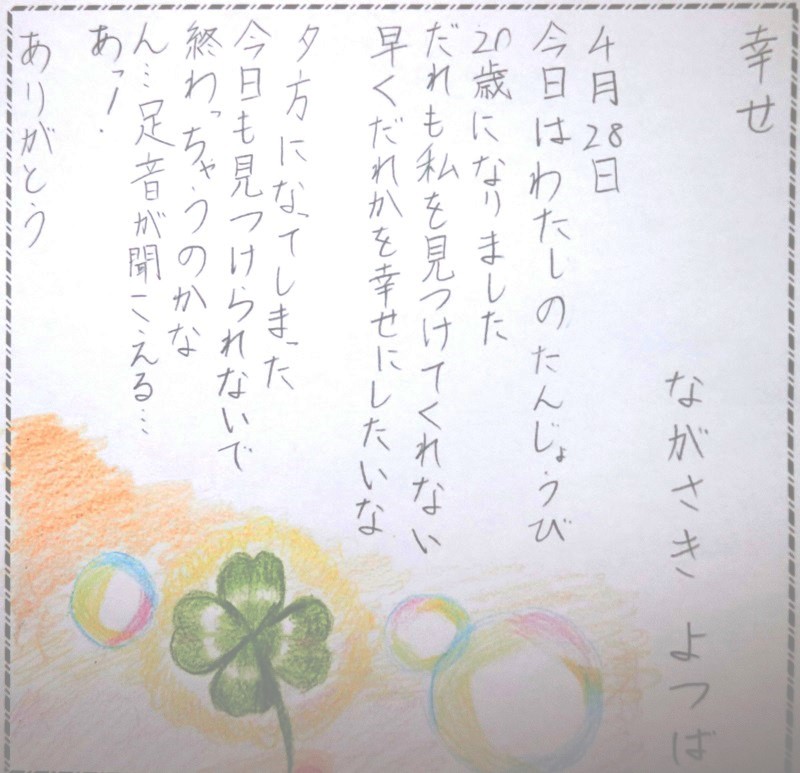 幸せ
ながさき よつば
4月28日
今日はわたしのたんじょうび
20歳になりました
だれも私を見つけてくれない
早くだれかを幸せにしたいな
夕方になってしまった
今日も見つけられないで
終わっちゃうのかな
ん…足音が聞こえる…
あっ！
ありがとう